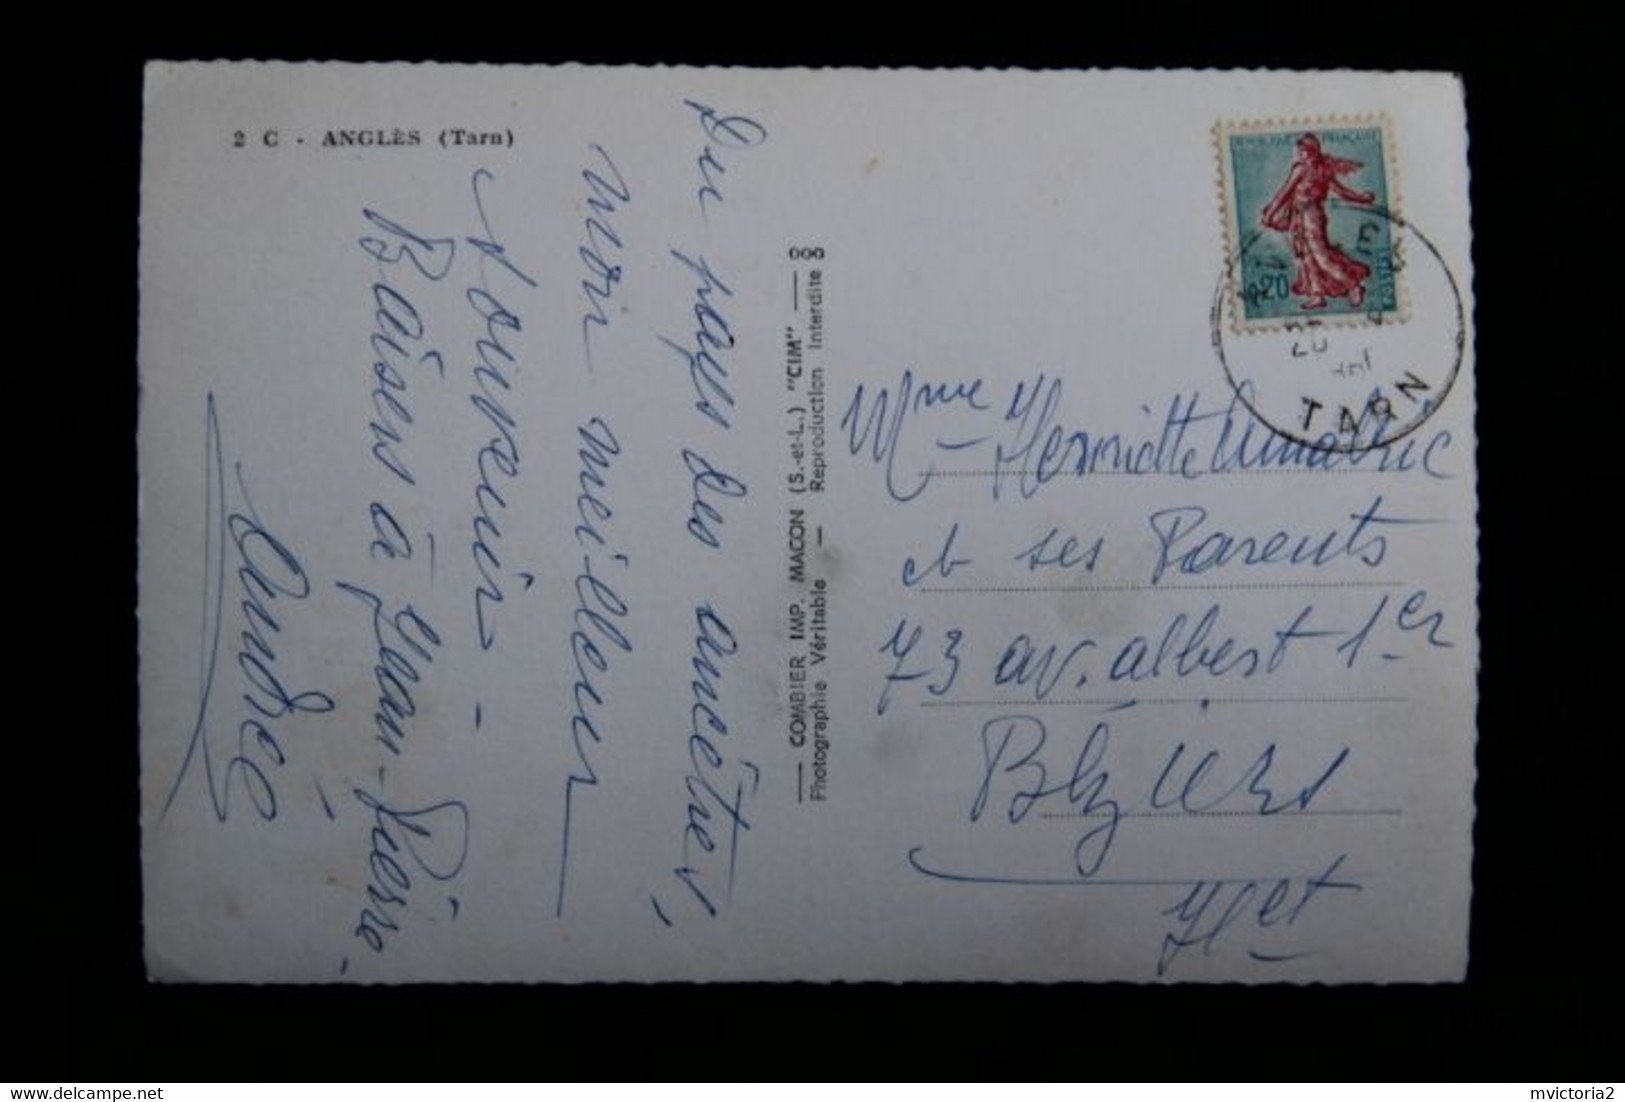 2 C - ANGLÈS (Tarn)
Du pays des ancêtres,
mon meilleur
souvenir -
Baisers à Jean-Pierre -
Andrée
COMBIER IMP. MACON (S.-et-L.) "CIM"
Photographie Véritable — Reproduction Interdite
RÉPUBLIQUE FRANÇAISE
0,20
POSTES
TARN
Mme Henriette Amalric
et ses Parents
73 av. albert 1er
Béziers
Het
Delcampe.net
mvictoria2